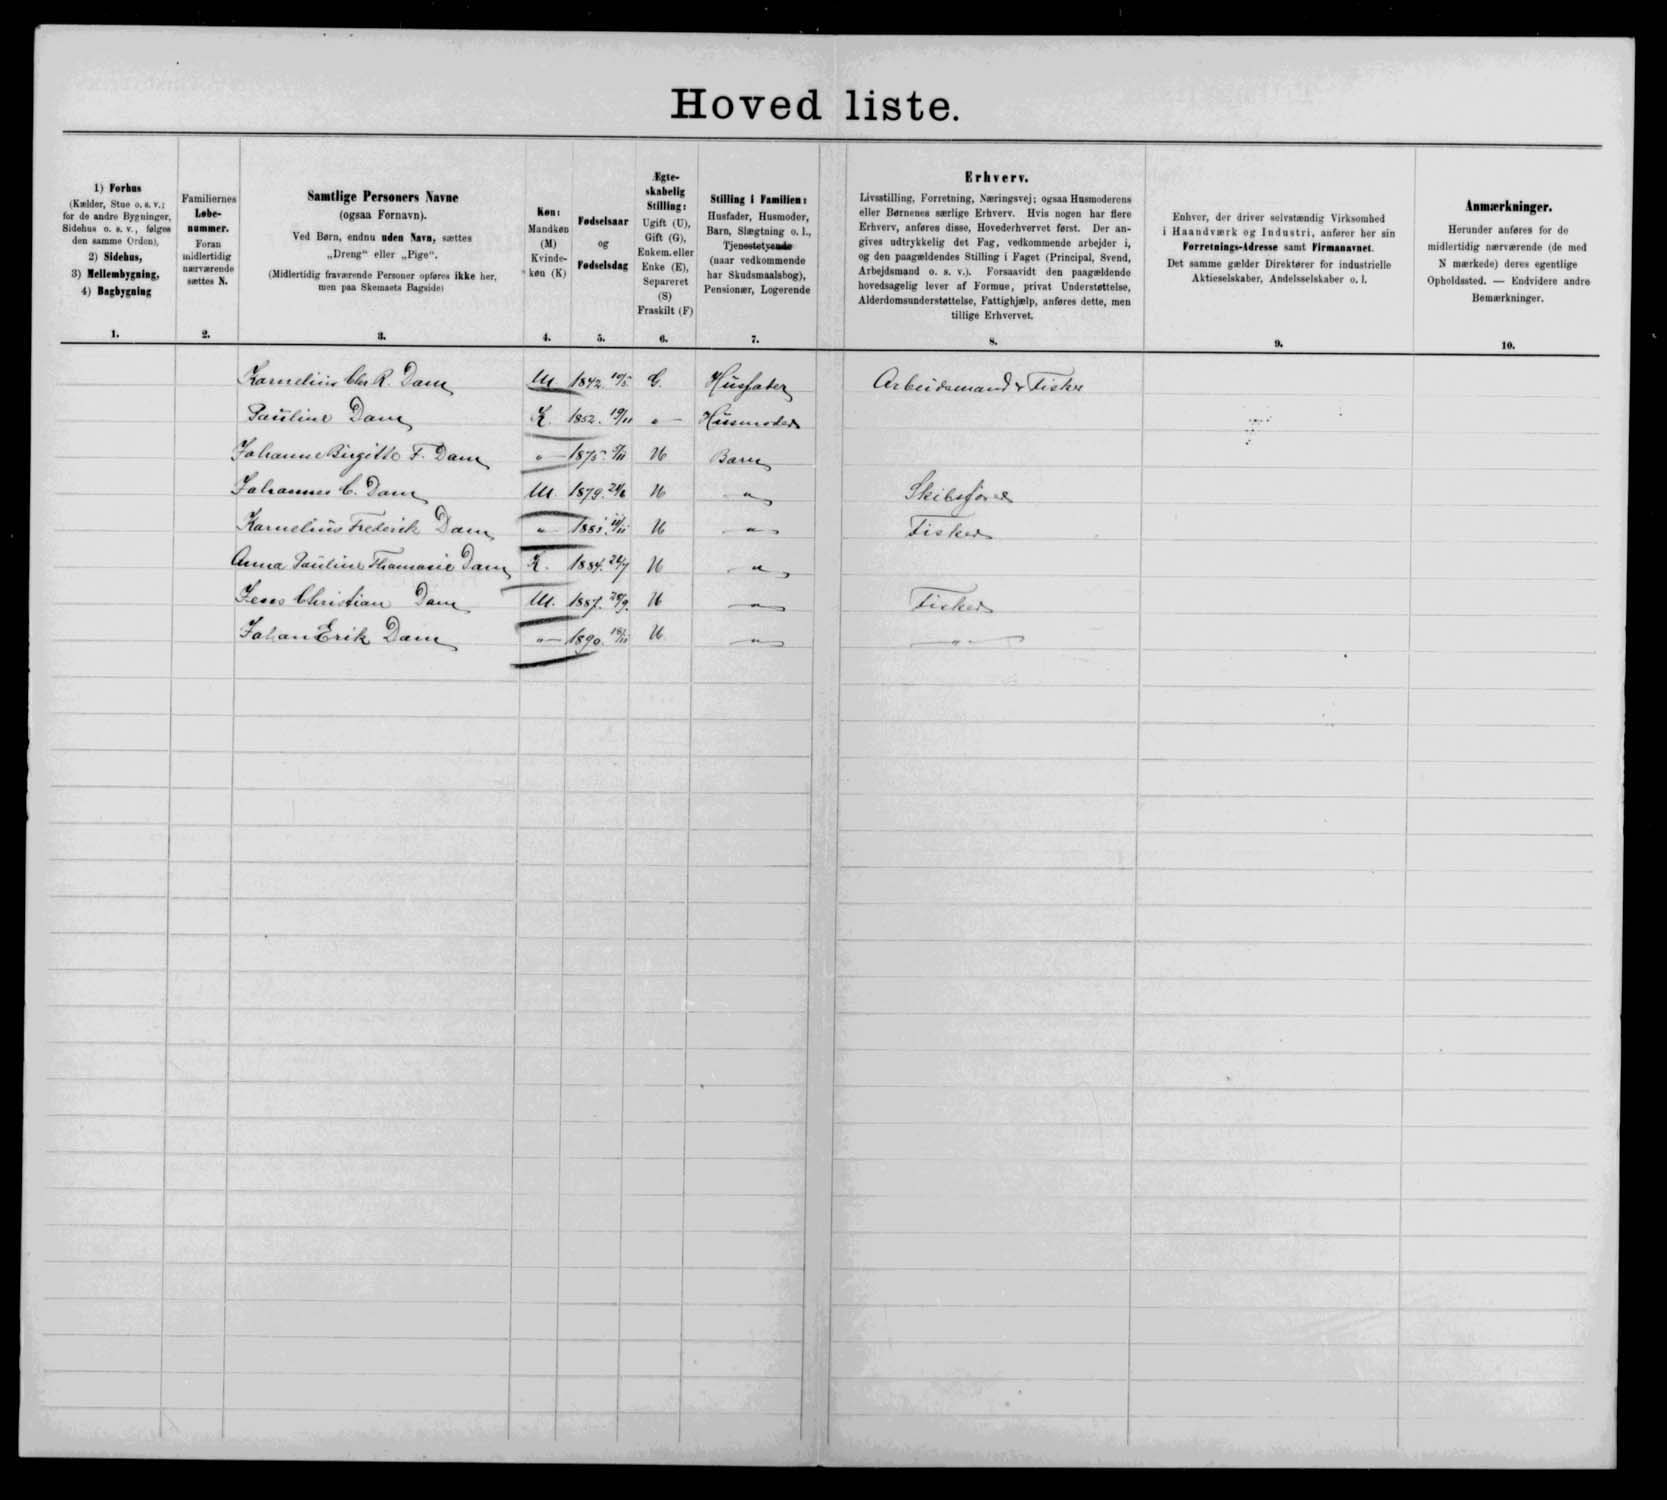 Hoved liste.
1) Forhus
(Kælder, Stue o. s. v.;
for de andre Bygninger,
Sidehus o. s. v., følges
den samme Orden),
2) Sidehus,
3) Mellembygning,
4) Bagbygning
1.
Familiernes
Løbe-
nummer.
Foran
midlertidig
nærværende
sættes N.
2.
Samtlige Personers Navne
(ogsaa Fornavn).
Ved Børn, endnu uden Navn, sættes
„Dreng“ eller „Pige“.
(Midlertidig fraværende Personer opføres ikke her,
men paa Skemaets Bagside)
3.
Køn:
Mandkøn
(M)
Kvinde-
køn (K)
4.
Fødselsaar
og
Fødselsdag
5.
Ægte-
skabelig
Stilling:
Ugift (U),
Gift (G),
Enkem. eller
Enke (E),
Separeret
(S)
Fraskilt (F)
6.
Stilling i Familien:
Husfader, Husmoder,
Barn, Slægtning o. l.,
Tjenestetyende
(naar vedkommende
har Skudsmaalsbog),
Pensionær, Logerende
7.
Erhverv.
Livsstilling, Forretning, Næringsvej; ogsaa Husmoderens
eller Børnenes særlige Erhverv. Hvis nogen har flere
Erhverv, anføres disse, Hovederhvervet først. Der an-
gives udtrykkelig det Fag, vedkommende arbejder i,
og den paagældendes Stilling i Faget (Principal, Svend,
Arbejdsmand o. s. v.). Forsaavidt den paagældende
hovedsagelig lever af Formue, privat Understøttelse,
Alderdomsunderstøttelse, Fattighjælp, anføres dette, men
tillige Erhvervet.
8.
Enhver, der driver selvstændig Virksomhed
i Haandværk og Industri, anfører her sin
Forretnings-Adresse samt Firmanavnet.
Det samme gælder Direktører for industrielle
Aktieselskaber, Andelsselskaber o. l.
9.
Anmærkninger.
Herunder anføres for de
midlertidig nærværende (de med
N mærkede) deres egentlige
Opholdssted. — Endvidere andre
Bemærkninger.
10.
Kornelius Chr R. Dam M 1842. 10/5 G. Husfader Arbeidsmand & Fisker
Pauline Dam K. 1852. 19/11 „ — Husmoder
Johanne Birgitte F. Dam „ — 1875 /11 U Barn
Johannes C. Dam M. 1879. U „ Skibsfører
Kornelius Frederik Dam „ 11/11 U „ Fisker
Anna Pauline Thomasie Dam K. 1884. U „
Jens Christian Dam M. 1887. U „ Fisker
Johan Erik Dam „ — 1890. 18/11 U „ — „ —